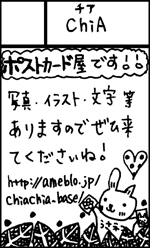 チア
ChiA
ポストカード屋です!!
写真・イラスト・文字 等
ありますのでぜひ来
てくださいね!
http://ameblo.jp/
chiachia-base/